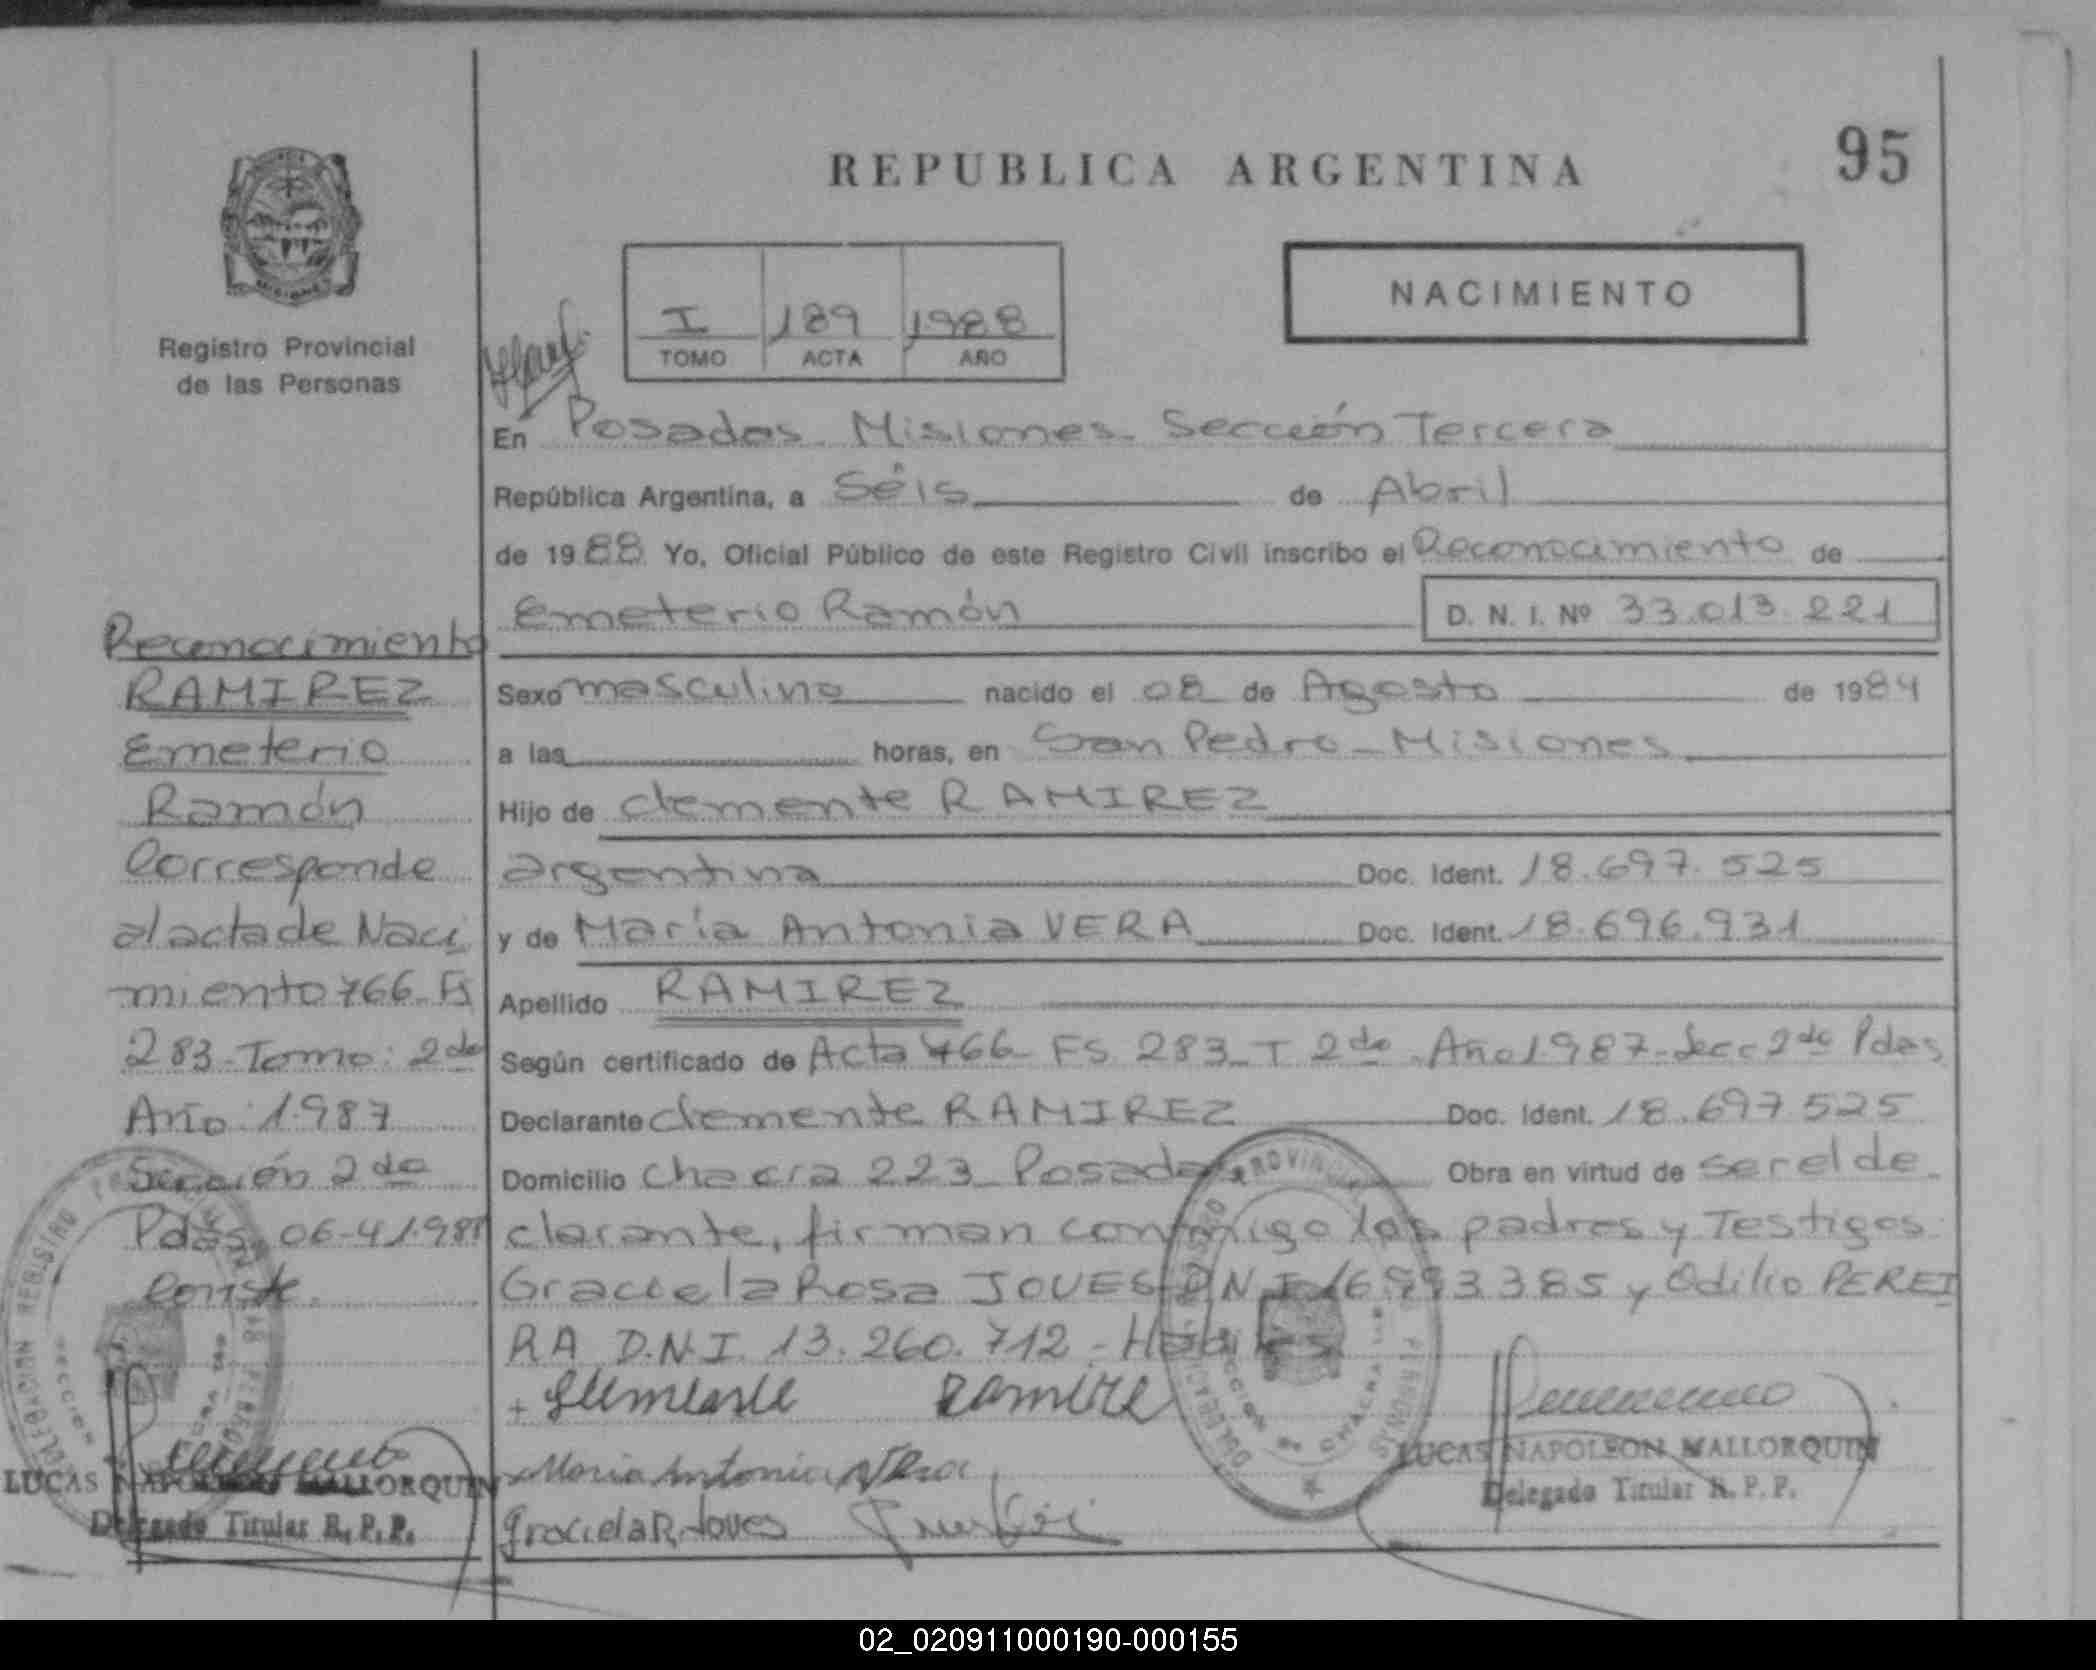 REPUBLICA ARGENTINA
95
Registro Provincial
de las Personas
I 189 1988
TOMO ACTA AÑO
NACIMIENTO
En Posadas Misiones Sección Tercera
República Argentina, a Séis de Abril
de 1988 Yo, Oficial Público de este Registro Civil inscribo el Reconocimiento de
Emeterio Ramón D. N. I. Nº 33.013.221
Sexo masculino nacido el 08 de Agosto de 1984
a las horas, en San Pedro - Misiones
Hijo de Clemente RAMIREZ
argentina Doc. Ident. 18.697.525
y de María Antonia VERA Doc. Ident. 18.696.931
Apellido RAMIREZ
Según certificado de Acta 766 - FS. 283 - T 2do - Año 1987 - Secc 2da Pdas
Declarante Clemente RAMIREZ Doc. Ident. 18.697525
Domicilio Chacra 223 - Posadas Obra en virtud de ser el de-
clarante, firman conmigo los padres y Testigos
Graciela Rosa JOUES D.N.I. 16.993.385 y Odilio PEREI
RA D.N.I. 13.260.712 - Hábiles
+ Clemente Ramire
Maria Antonia Vera
Graciela R. Joues
LUCAS NAPOLEON MALLORQUIN
Delegado Titular R. P. P.
Reconocimiento
RAMIREZ
Emeterio
Ramón
Corresponde
al acta de Naci
miento 766 - Fs
283 - Tomo: 2do
Año: 1987
Sección 2da
Pdas, 06-4-1988
Conste.
LUCAS NAPOLEON MALLORQUIN
Delegado Titular R. P. P.
02_020911000190-000155